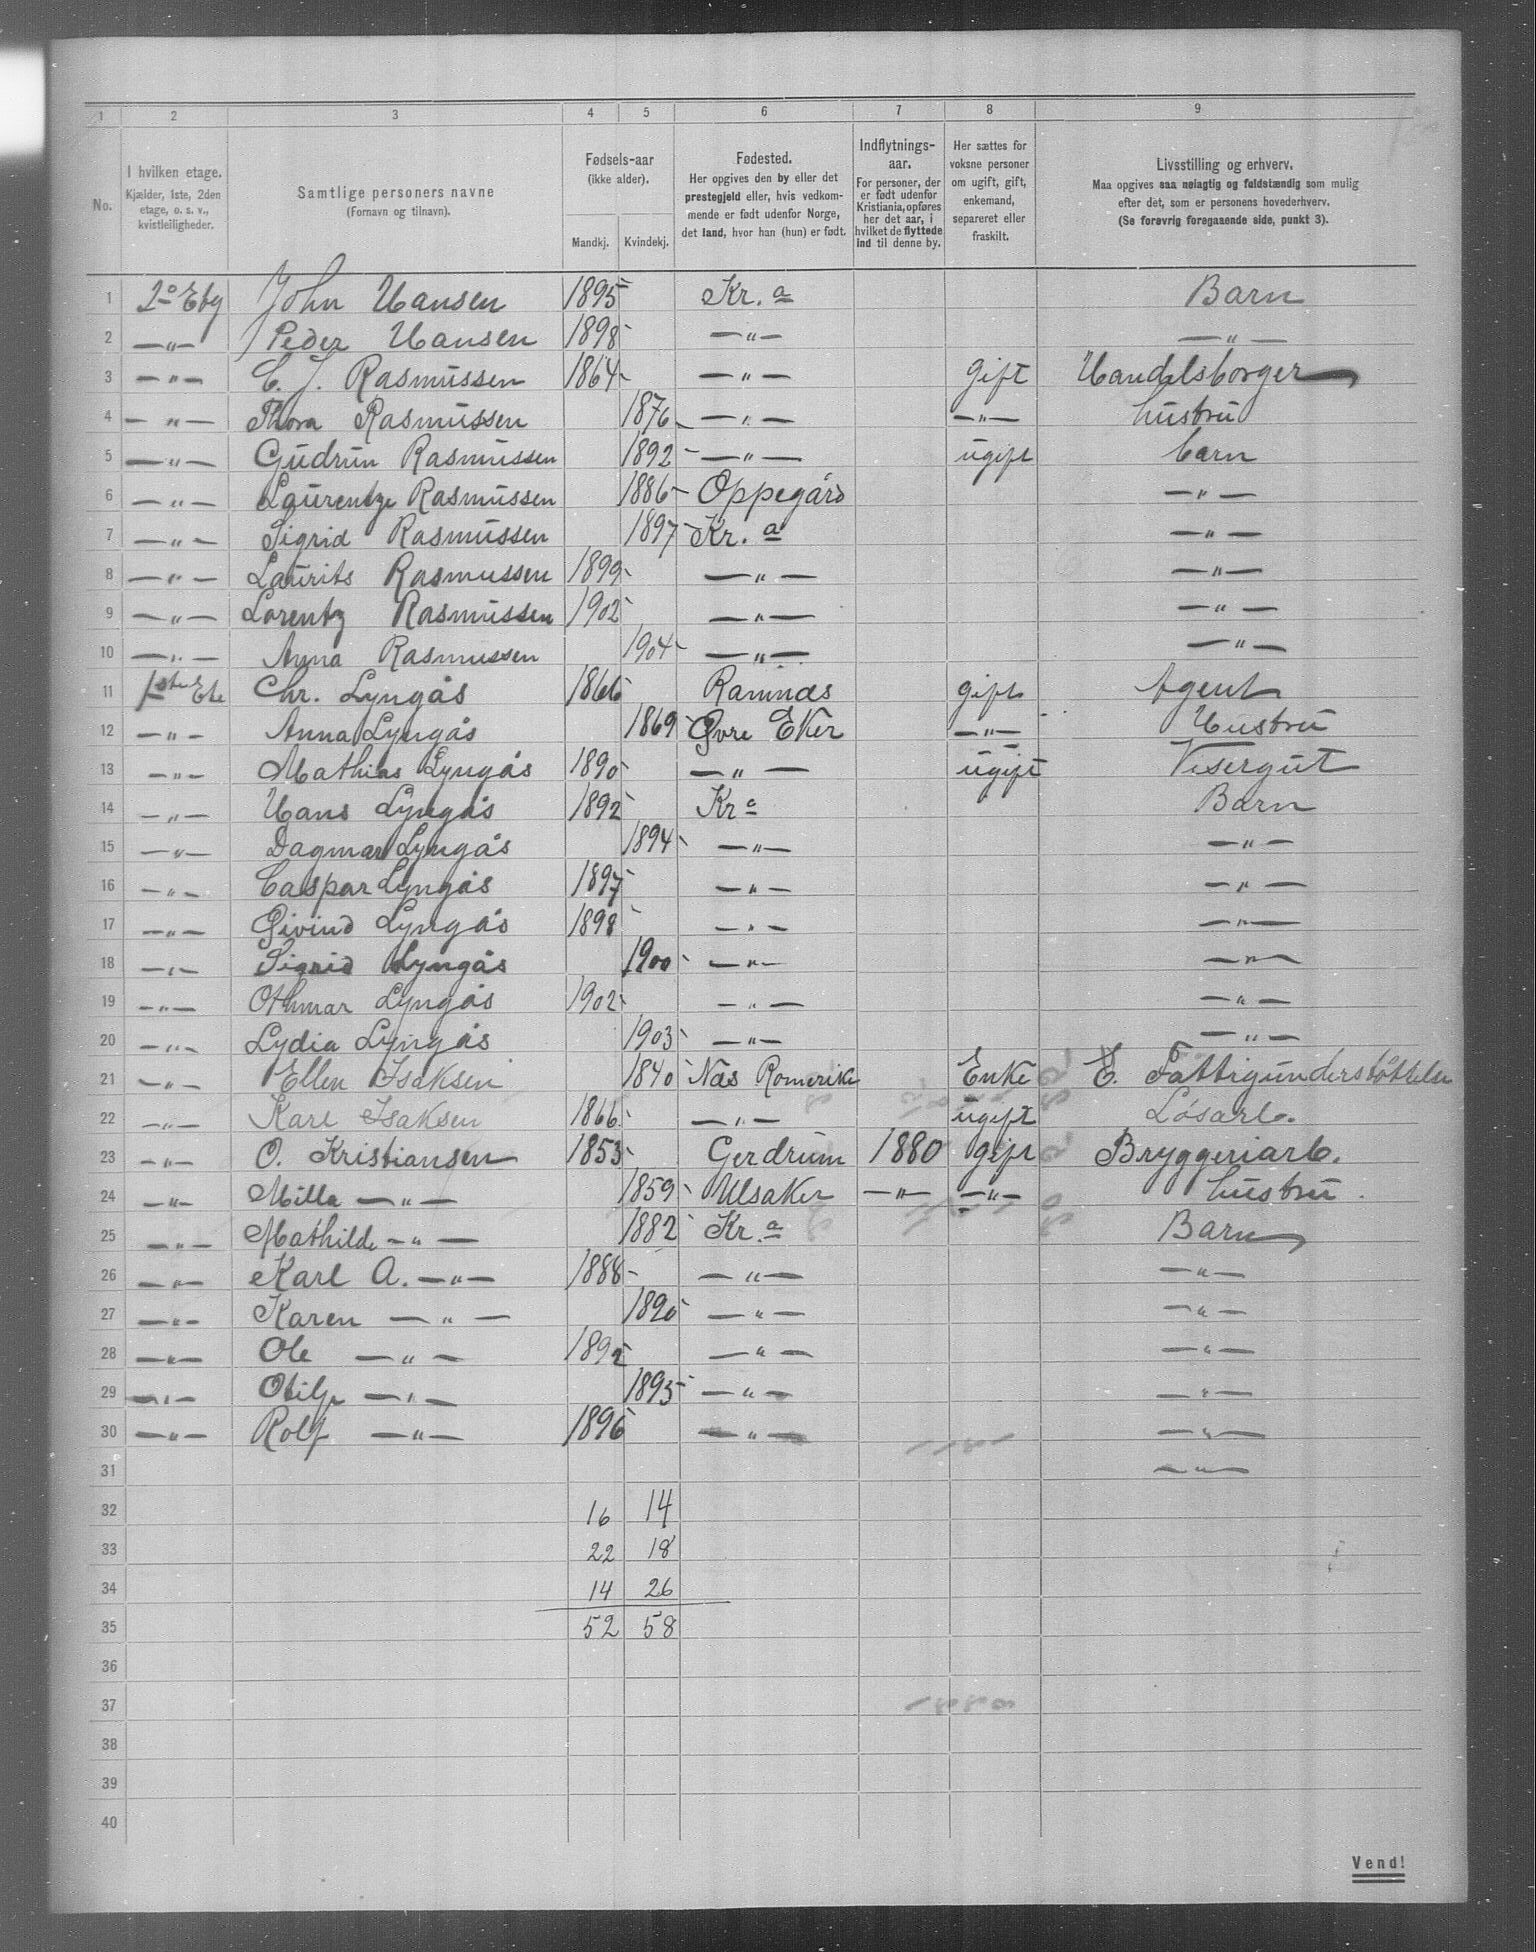 1 2 3 4 5 6 7 8 9
No.
I hvilken etage.
Kjælder, 1ste, 2den
etage, o. s. v.,
kvistleiligheder.
Samtlige personers navne
(Fornavn og tilnavn).
Fødsels-aar
(ikke alder).
Mandkj. Kvindekj.
Fødested.
Her opgives den by eller det
prestegjeld eller, hvis vedkom-
mende er født udenfor Norge,
det land, hvor han (hun) er født.
Indflytnings-
aar.
For personer, der
er født udenfor
Kristiania, opføres
her det aar, i
hvilket de flyttede
ind til denne by.
Her sættes for
voksne personer
om ugift, gift,
enkemand,
separeret eller
fraskilt.
Livsstilling og erhverv.
Maa opgives saa nøiagtig og fuldstændig som mulig
efter det, som er personens hovederhverv.
(Se forøvrig foregaaende side, punkt 3).
1 2° Etg John Hansen 1895 Kr.a Barn
2 —"— Peder Hansen 1898 —"— —"—
3 —"— C. J. Rasmussen 1864 —"— gift Handelsborger
4 —"— Thora Rasmussen 1876 —"— —"— hustru
5 —"— Gudrun Rasmussen 1892 —"— ugift barn
6 —"— Laurentze Rasmussen 1886 Oppegård —"—
7 —"— Sigrid Rasmussen 1897 Kr.a —"—
8 —"— Laurits Rasmussen 1899 —"— —"—
9 —"— Lorentz Rasmussen 1902 —"— —"—
10 —"— Anna Rasmussen 1904 —"— —"—
11 1ste Ete Chr. Lyngås 1866 Ramnæs gift Agent
12 —"— Anna Lyngås 1869 Øvre Eker —"— Hustru
13 —"— Mathias Lyngås 1890 —"— ugift Visergut
14 —"— Hans Lyngås 1892 Kra Barn
15 —"— Dagmar Lyngås 1894 —"— —"—
16 —"— Caspar Lyngås 1897 —"— —"—
17 —"— Øivind Lyngås 1898 —"— —"—
18 —"— Sigrid Lyngås 1900 —"— —"—
19 —"— Othmar Lyngås 1902 —"— —"—
20 —"— Lydia Lyngås 1903 —"— —"—
21 —"— Ellen Isaksen 1840 Nås Romerike Enke E. Fattigunderstøttelse
22 —"— Karl Isaksen 1866 —"— ugift Løsarb.
23 —"— O. Kristiansen 1853 Gerdrum 1880 gift Bryggeriarb.
24 —"— Milla —"— 1859 Ulsaker —"— —"— hustru
25 —"— Mathilde —"— 1882 Kr.a Barn
26 —"— Karl A. —"— 1888 —"— —"—
27 —"— Karen —"— 1890 —"— —"—
28 —"— Ole —"— 1892 —"— —"—
29 —"— Otilje —"— 1895 —"— —"—
30 —"— Rolf —"— 1896 —"— —"—
31 —"—
32 16 14
33 22 18
34 14 26
35 52 58
36
37
38
39
40
Vend!